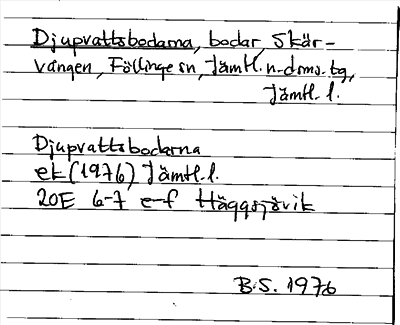 Djupvattsbodarna, bodar, Skär-
vangen, Föllinge sn, Jämtl. n. dms. tg,
Jämtl. l.
Djupvattsbodarna
ek (1976) Jämtl. l.
20E 6-7 e-f Häggsjövik
B.S. 1976